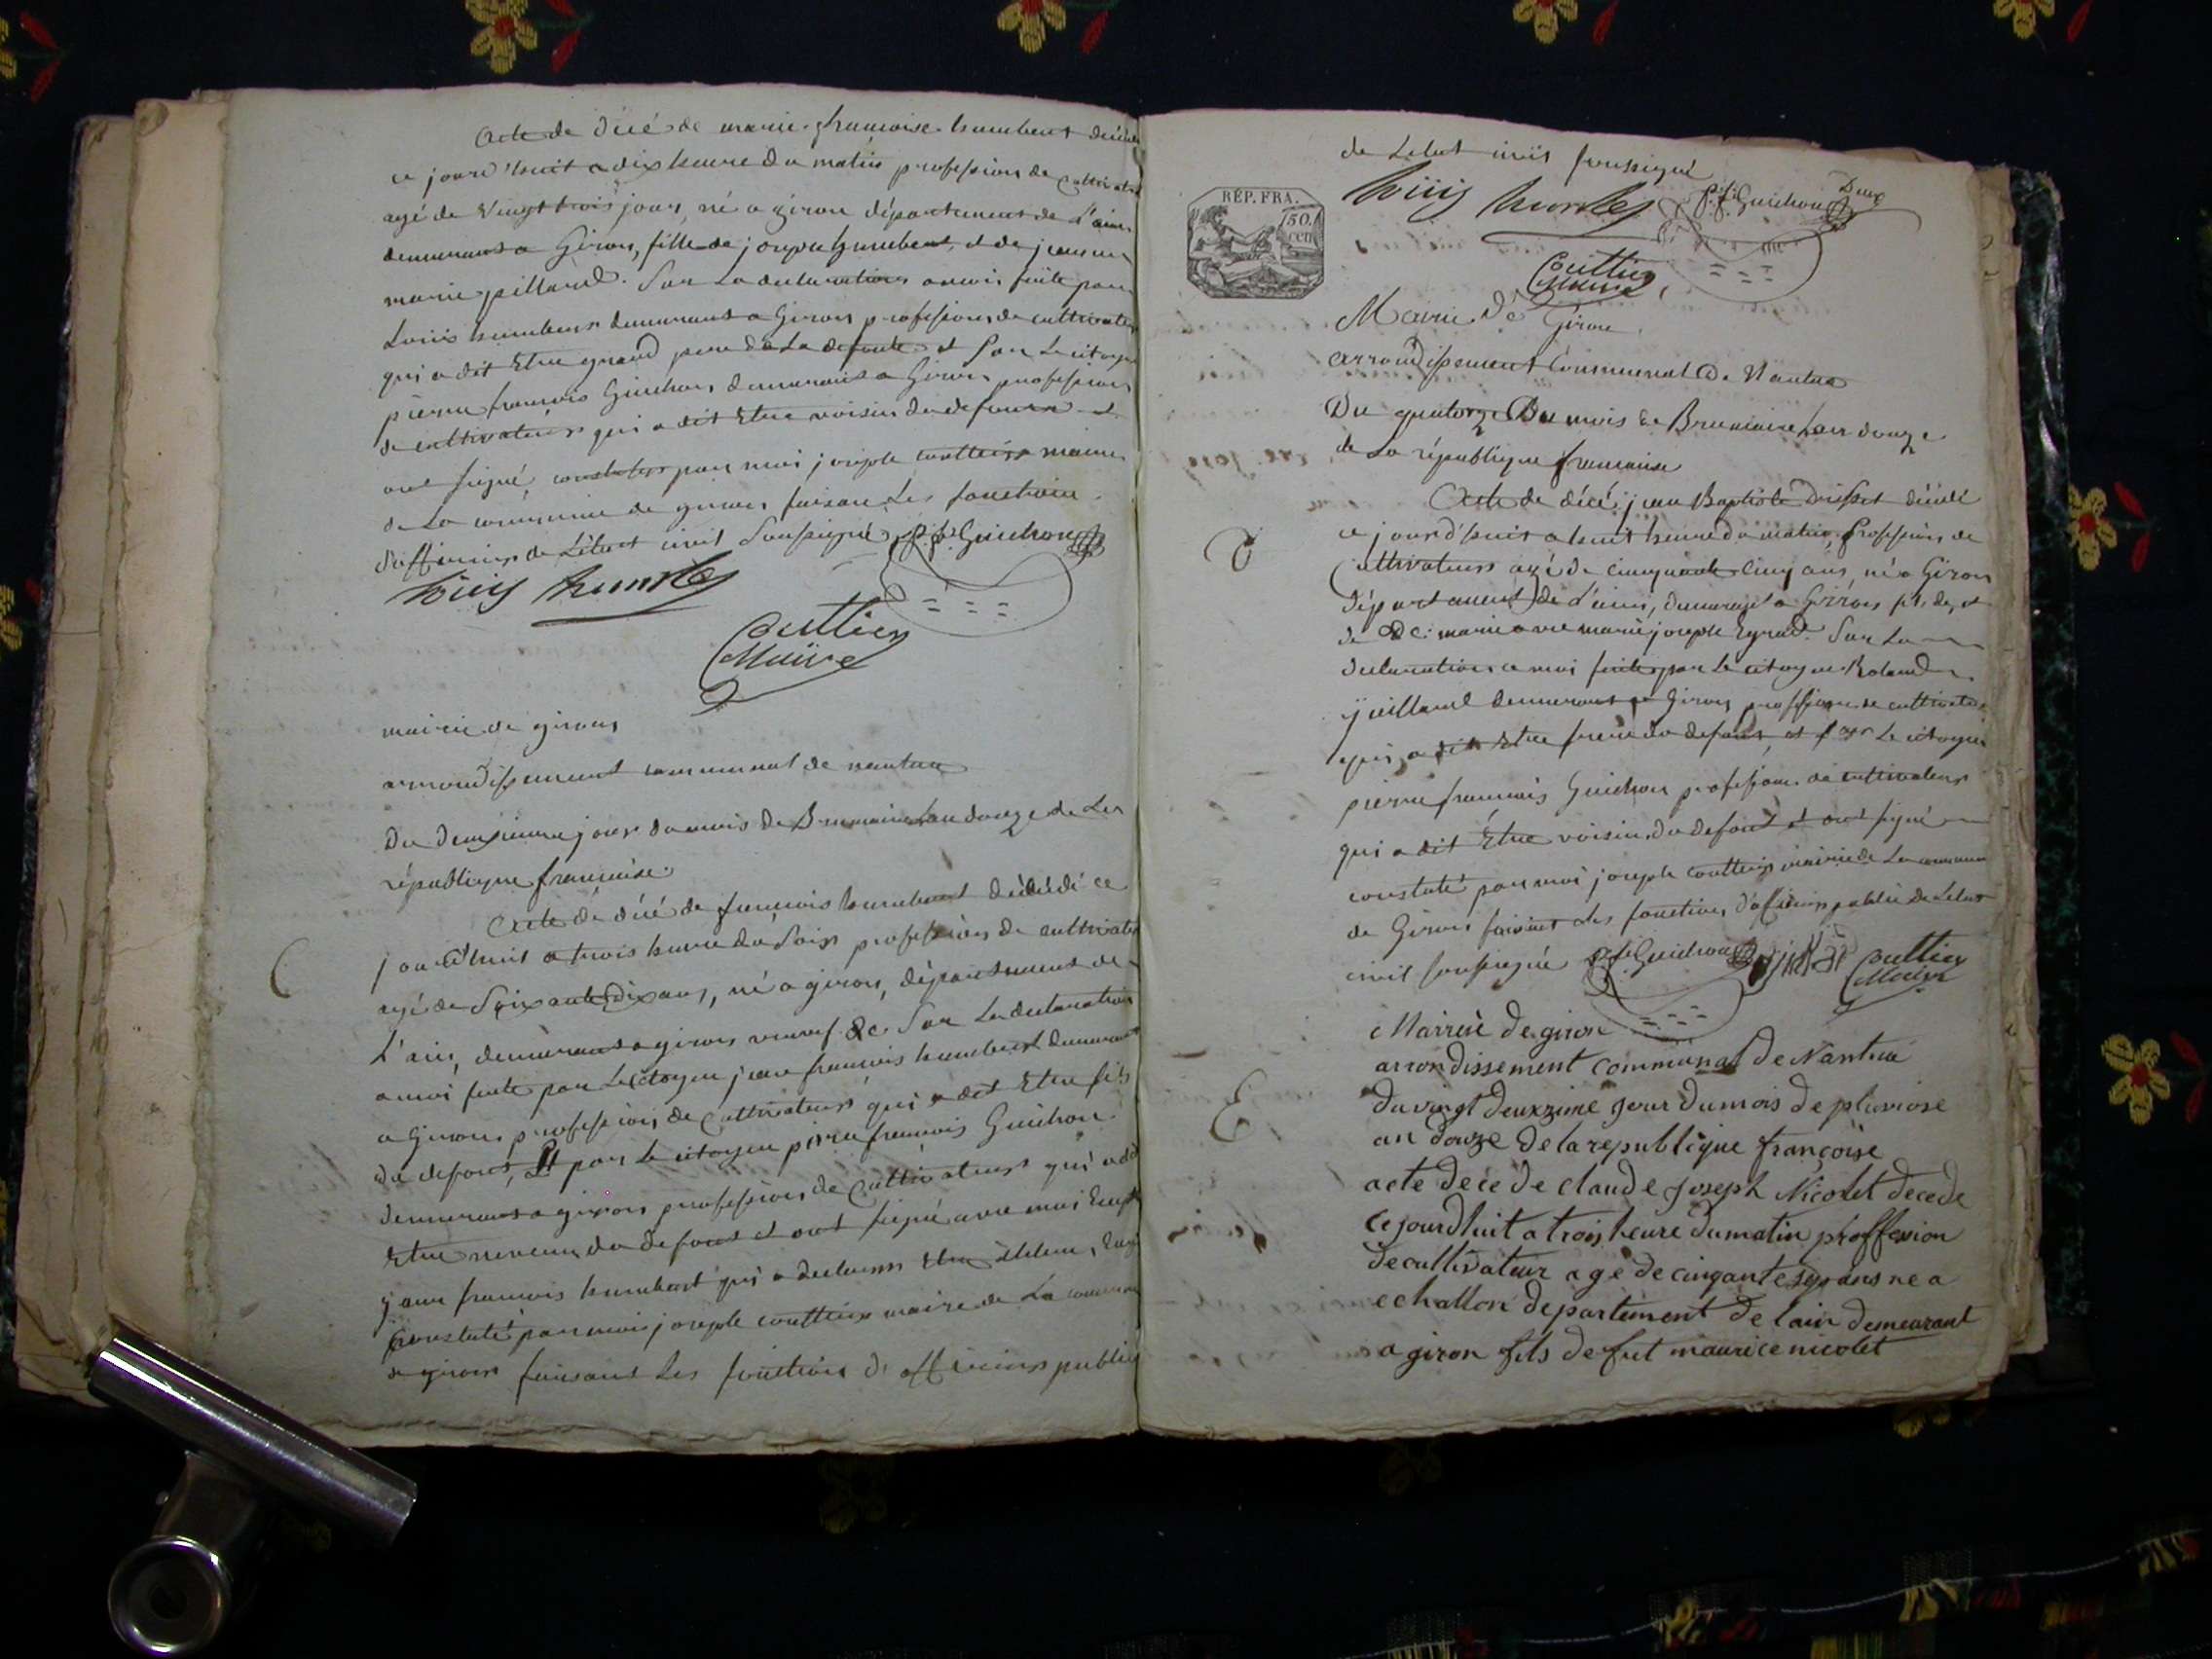 Acte de décé de marie françoise humbert décédé
ce jourd'huit a dix heure du matin profession de cultivateur
agé de vingt trois jour, né a giron département de l'ain
demeurant a Giron, fille de joseph humbert, et de jeanne
marie pilland. Sur La declaration a moi faite par
Louis humbert demeurant a Giron profession de cultivateur
qui a dit Etre grand pere de La defunte et par Le citoyen
pierre françois Guichon demeurant a Giron profession
de cultivateur qui a dit Etre voisin du defunt et
ont signé, constaté par moi joseph couttier maire
de La commune de giron faisant Les fonction
d'officier de L'état civil Soussigné p. f. Guichon
louis humber
Couttier
Maire
mairie de giron
arrondissement communal de nantua
Du deuxieme jour du mois de Brumaire Lan douze de La
république française
Acte de décé de françois humbert décédé ce
jourd'huit a trois heure du Soir profession de cultivateur
agé de Soixante dix ans, né a giron, département de
L'ain, demeurant a giron veuf &c Sur La declaration
a moi faite par Le citoyen jean françois humbert demeurant
a Giron profession de Cultivateur qui a dit Etre fils
du defunt, Et par Le citoyen pierre françois Guichon
demeurant a giron profession de Cultivateur qui a dit
Etre neveu du defunt et ont signé avec moi Excepté
jean françois humbert qui a declarer Etre illiteré,
Constaté par moi joseph couttier maire de La commune
de giron faisant Les fonction d'officier public
de Letat civil soussigné
RÉP. FRA.
50.
cen
louis humber p. f. Guichon
Deux
Couttier
Maire
Mairie De Giron
arrondissement Communal De Nantua
Du quatorze Du mois de Brumaire Lan douze
de La république française
D
Acte de décé jean Baptiste décédé
ce jourd'huit a huit heure du matin, Profession de
Cultivateur agé de cinquante cinq ans, né a Giron
Département de L'ain, demeurant a Giron fils de, et
de &c. marié avec marie joseph Sur La
declaration a moi faite par Le citoyen Roland
demeurant a Giron profession de cultivateur
qui a dit Etre frere du defunt, et par Le citoyen
pierre françois Guichon profession de cultivateur
qui a dit Etre voisin du defunt et ont signé
constaté par moi joseph couttier mairie de La commune
de Giron faisant Les fonction d'officier public De Letat
civil soussigné p. f. Guichon Couttier
Maire
Mairrie De giron
arrondissement communal De Nantua
E
du vingt deuxzime jour du mois de pluviose
an douze de la republique françoise
acte dece De claude joseph Nicolet decede
ce jourdhuit a trois heure du matin proffession
de cultivateur age de cinqante sep ans ne a
echallon departement de lain demeurant
a giron fils de fut maurice nicolet